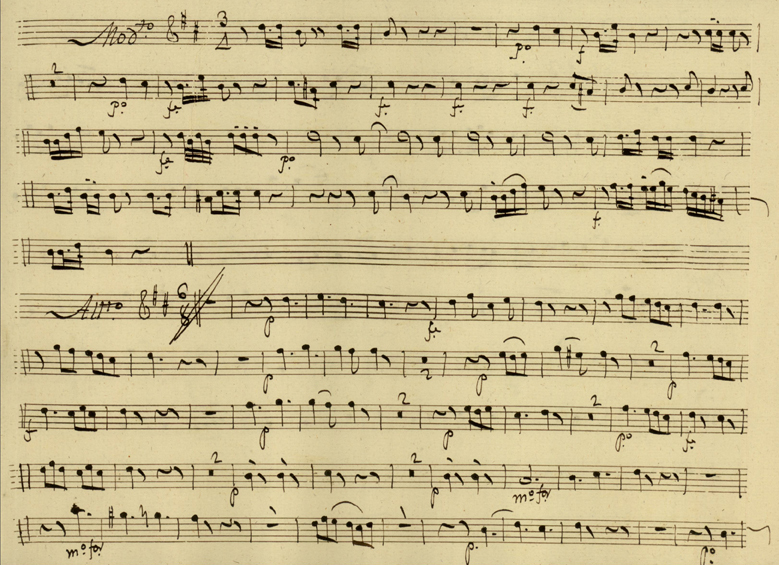 Mod.to 3 4
p.o f
2 p.o f.e f. f. f.
f.e p.o
f.
All.tto 6 8 p f.e
p 2 p 2 p
f p 2 p 2 p.o f.
2 p 2 p m.o for
m.o for p. p.o